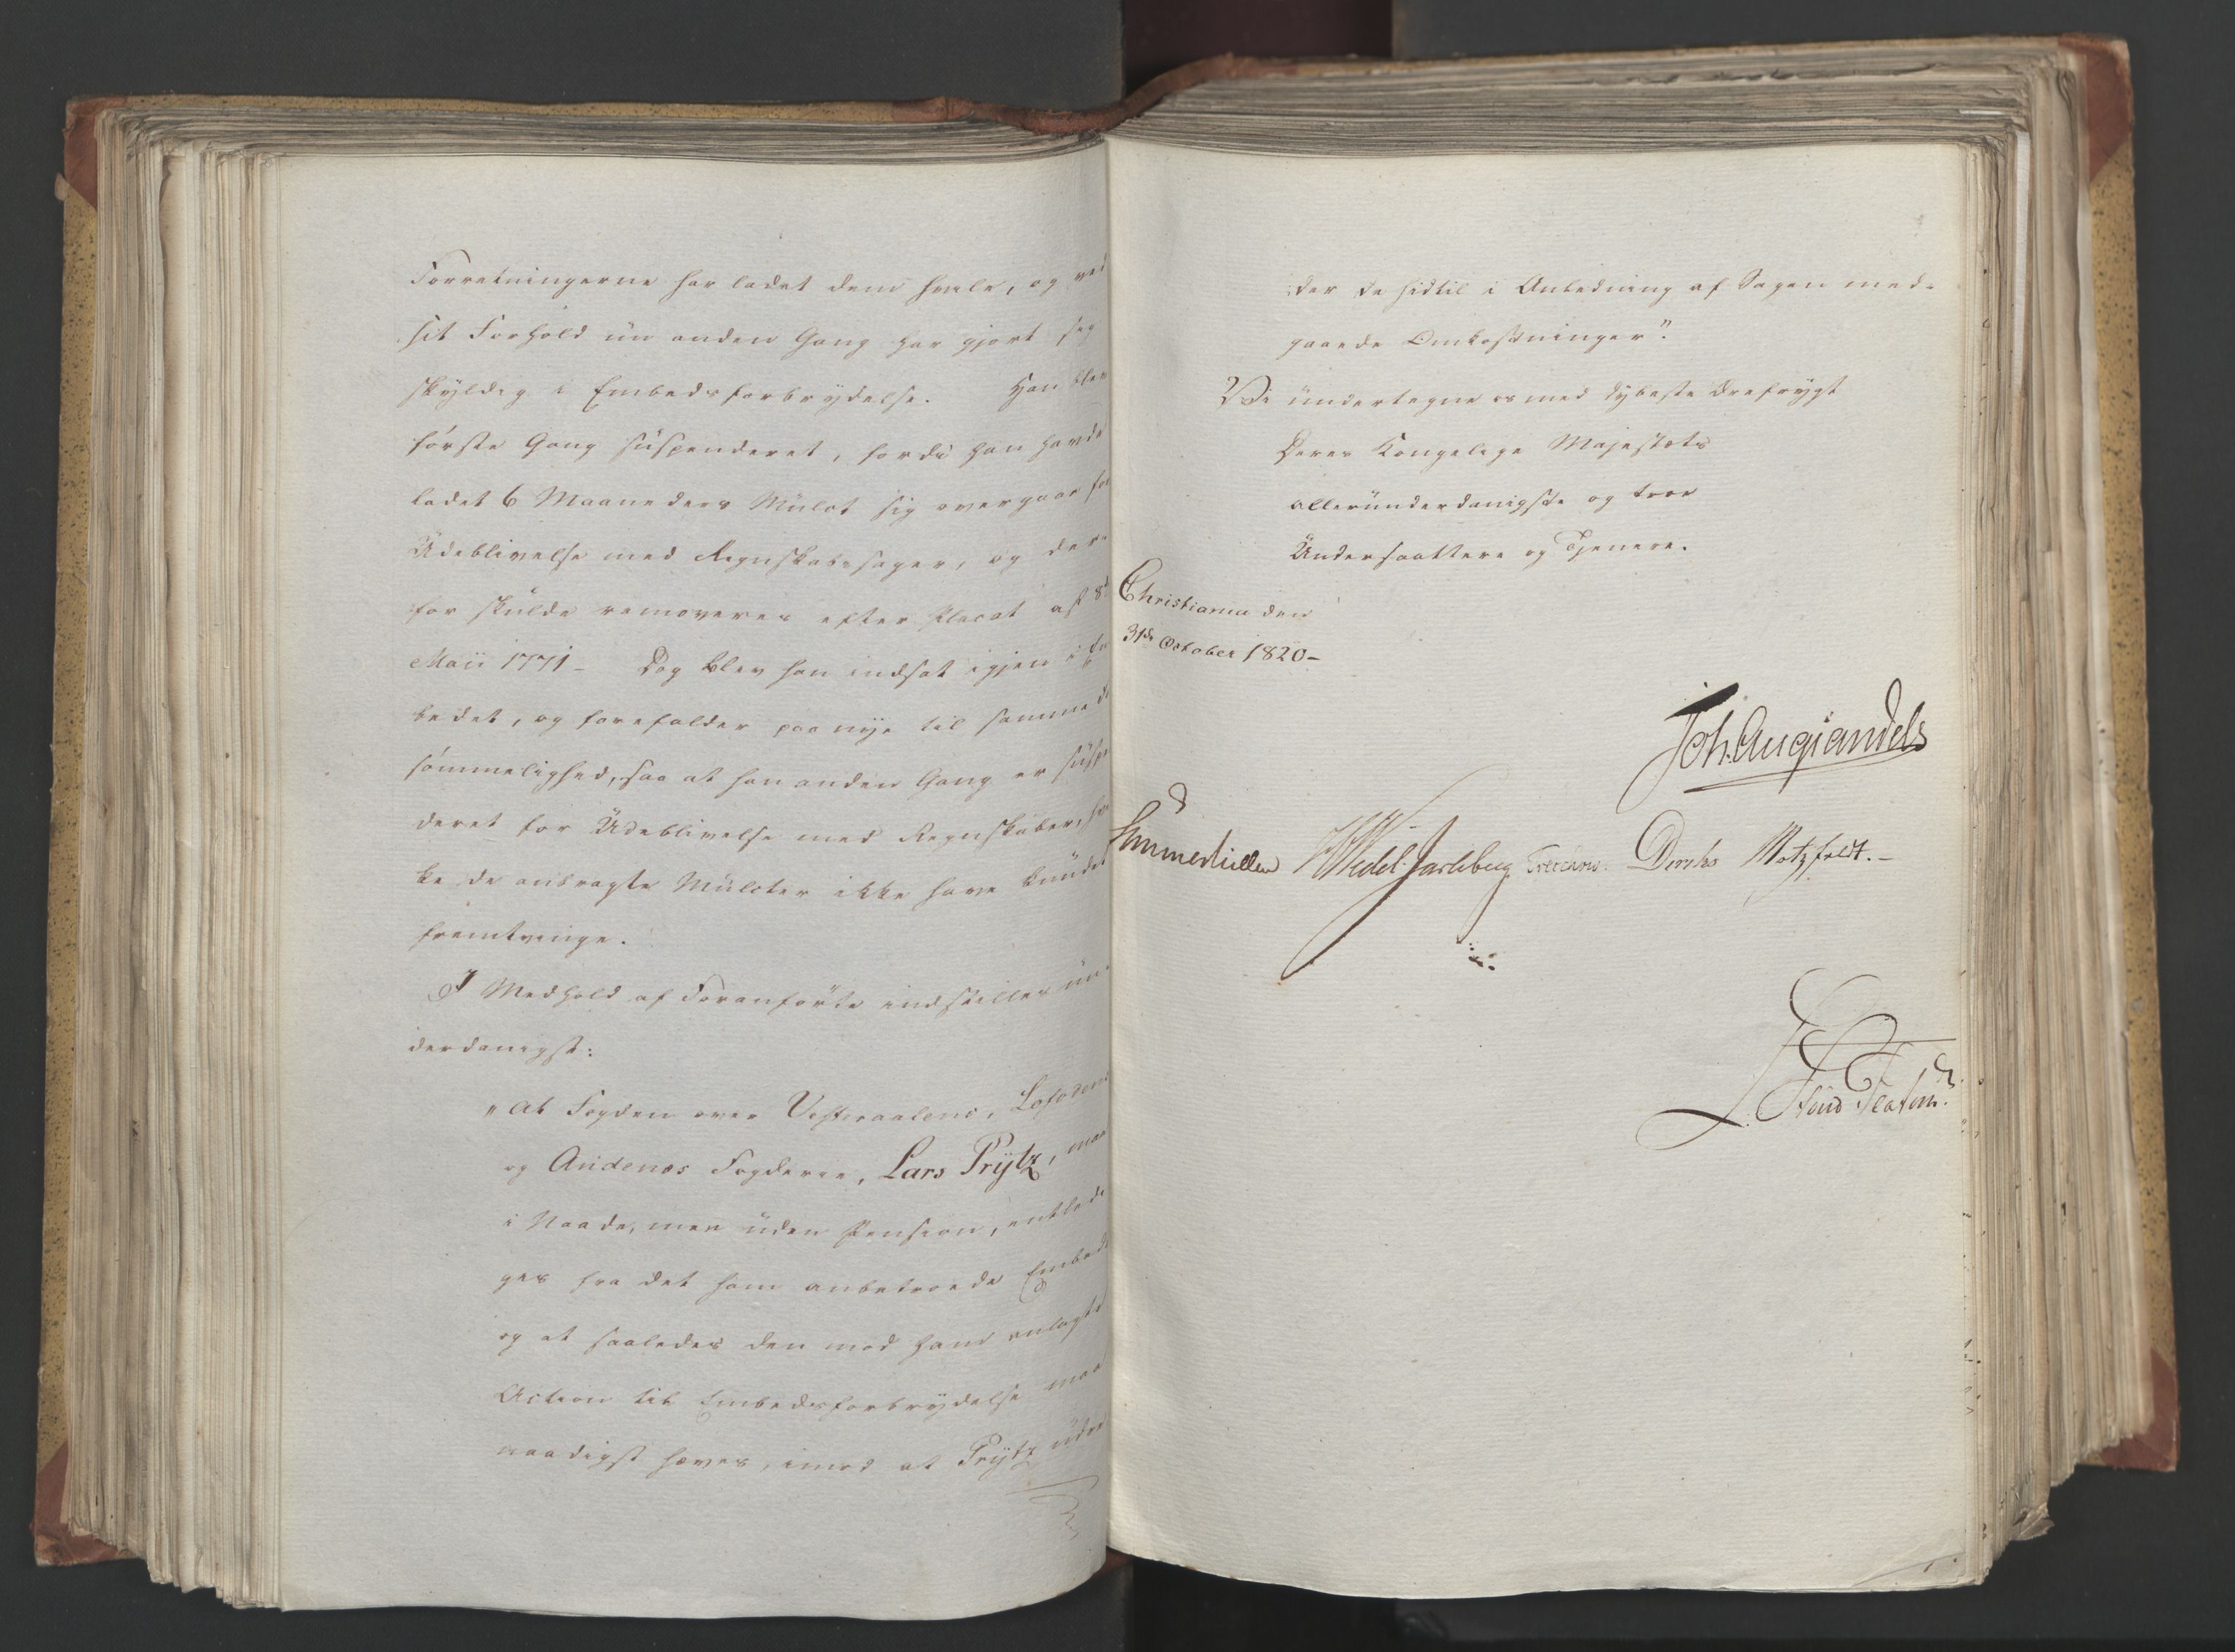 Forretningerne har ladet dem hvile, og ved
sit Forhold en anden Gang har gjort sig
skyldig i Embedsforbrydelse. Han blev
første Gang suspenderet, fordi han havde
ladet 6 Maaneders Mulct sig overgaae for
Udeblivelse med Regnskabssager, og der-
for skulde removeres efter Placat af 8de
Maii 1771 - Dog blev han indsat igjen i Em
bedet, og forefalder paa nye til samme
sømmelighed, saa at han anden Gang er suspen
deret for Udeblivelse med Regnskaber, hvil
ke de anbragte Mulcter ikke have kundet
fremtvinge.
I Medhold af Foranførte indstilles un-
derdanigst:
"At Fogden over Vesteraalens, Lofodens
og Andenæs Fogderie, Lars Prÿtz, maa
i Naade, men uden Pension, entledi
ges fra det ham anbetroede Embede
og at saaledes den mod ham anlagte
Action til Embedsforbrydelse maa
naadigst hæves, imod at Prÿtz udre
der de hidtil i Anledning af Sagen med-
gaaede Omkostninger".
Vi undertegne os med dybeste Ærefrygt
Deres Kongelige Majestæts
allerunderdanigste og troe
Undersaattere og Tjenere.
Christiania den
31de October 1820 -
Joh. Aug. Sandels
Sommerhielm HWedel Jarlsberg Treschow. Diriks Motzfeldt. -